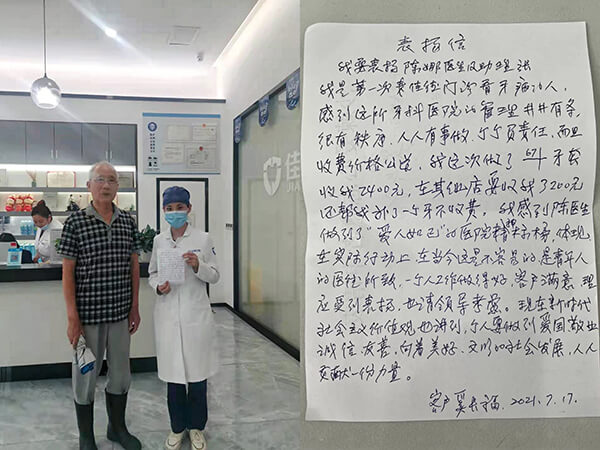 佳
JIA
表扬信
我要表扬陈娜医生及助理
我是第一次来佳佳门诊看牙病的人,
感到这所牙科医院的管理井井有条
很有秩序,人人有事做,个个负责任,而且
收费价格公道,我这次做了 牙套
收我2400元,在其他店要收我3200元
还帮我补了一个牙不收费。我感到陈医生
做到了“爱人如己”的医院精神 体现
在实际行动上,在当今这是不容易的是青年人
的医德所致,一个人工作做得好,客户满意,理
应受到表扬,也请领导考虑。现在新时代
社会主义价值观也讲到,个人要做到爱国敬业
诚信友善,向着美好、文明的社会发展,人人
贡献一份力量。
客户 2021.7.17.